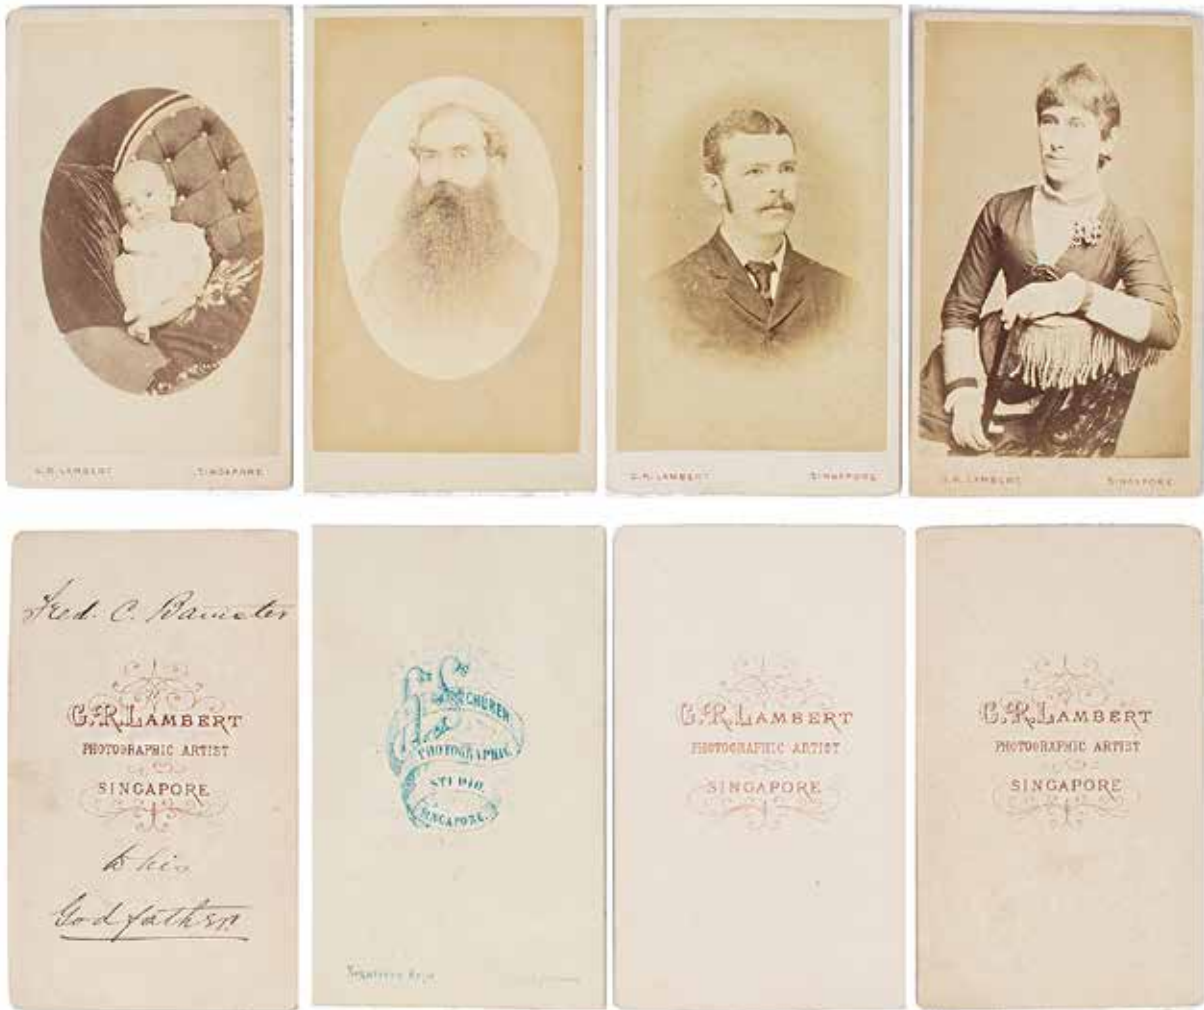 G.R. LAMBERT SINGAPORE
G.R. LAMBERT SINGAPORE
G.R. LAMBERT SINGAPORE
Fred. C. Bamister
G.R. LAMBERT
PHOTOGRAPHIC ARTIST
SINGAPORE
to his
Godfather
SCHUREN
PHOTOGRAPHIC
STUDIO.
SINGAPORE.
G.R. LAMBERT
PHOTOGRAPHIC ARTIST
SINGAPORE
G.R. LAMBERT
PHOTOGRAPHIC ARTIST
SINGAPORE